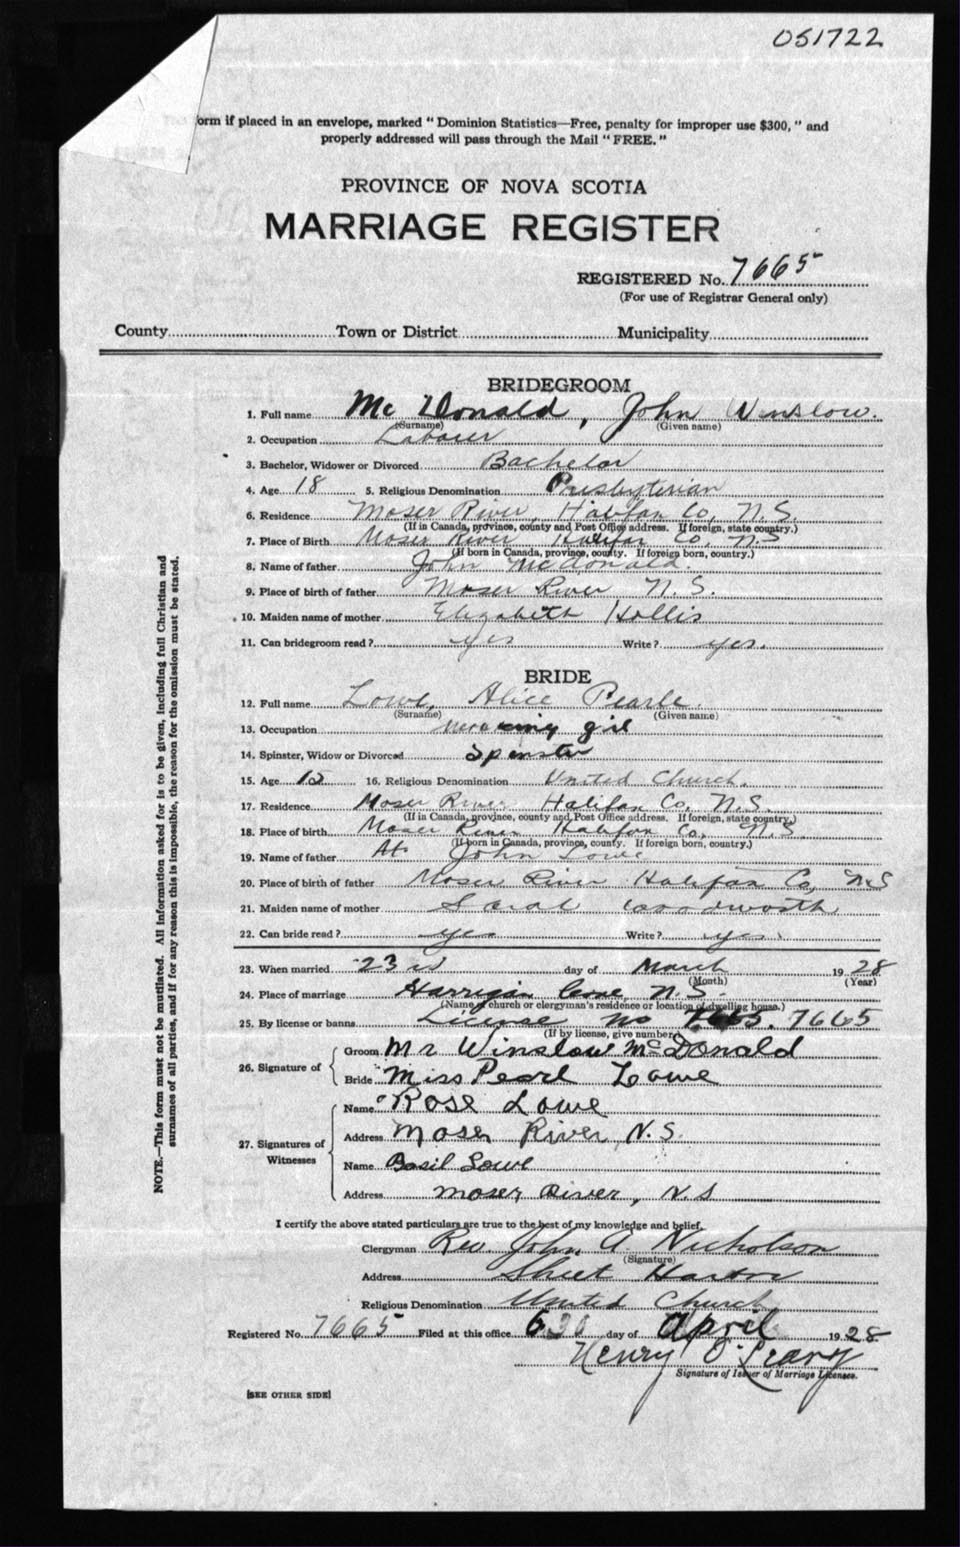 051722
orm if placed in an envelope, marked "Dominion Statistics—Free, penalty for improper use $300," and
properly addressed will pass through the Mail "FREE."
PROVINCE OF NOVA SCOTIA
MARRIAGE REGISTER
REGISTERED No. 7665
(For use of Registrar General only)
County Town or District Municipality
BRIDEGROOM
1. Full name Mc Donald, John Winslow.
(Surname) (Given name)
2. Occupation Laborer
3. Bachelor, Widower or Divorced Bachelor
4. Age 18 5. Religious Denomination Presbyterian
6. Residence Moser River, Halifax Co, N.S.
(If in Canada, province, county and Post Office address. If foreign, state country.)
7. Place of Birth Moser River Halifax Co, N.S
(If born in Canada, province, county. If foreign born, country.)
8. Name of father John McDonald.
9. Place of birth of father Moser River N.S.
10. Maiden name of mother Elizabeth Hollis
11. Can bridegroom read? yes Write? yes.
BRIDE
12. Full name Lowe, Alice Pearle.
(Surname) (Given name)
13. Occupation girl
14. Spinster, Widow or Divorced Spinster
15. Age 16. Religious Denomination United Church.
17. Residence Moser River Halifax Co, N.S.
(If in Canada, province, county and Post Office address. If foreign, state country.)
18. Place of birth Moser River Halifax Co, N.S
(If born in Canada, province, county. If foreign born, country.)
19. Name of father John Lowe
20. Place of birth of father Moser River Halifax Co, N.S
21. Maiden name of mother Sarah Woodworth
22. Can bride read? yes Write? yes.
23. When married 23rd day of March 1928
(Month) (Year)
24. Place of marriage Harrigan Cove, N.S.
(Name of church or clergyman's residence or location of dwelling house.)
25. By license or banns License No 7665
(If by license, give number)
26. Signature of Groom Mr Winslow McDonald
Bride Miss Pearl Lowe
27. Signatures of Witnesses Name Rose Lowe
Address Moser River, N.S.
Name Basil Lowe
Address Moser River, N.S
I certify the above stated particulars are true to the best of my knowledge and belief.
Clergyman Rev John A Nicholson
(Signature)
Address Sheet Harbor
Religious Denomination United Church
Registered No. 7665 Filed at this office 6 day of April 1928
Henry O'Leary
Signature of Issuer of Marriage Licenses.
[SEE OTHER SIDE]
NOTE.—This form must not be mutilated. All information asked for is to be given, including full Christian and
surnames of all parties, and if for any reason this is impossible, the reason for the omission must be stated.